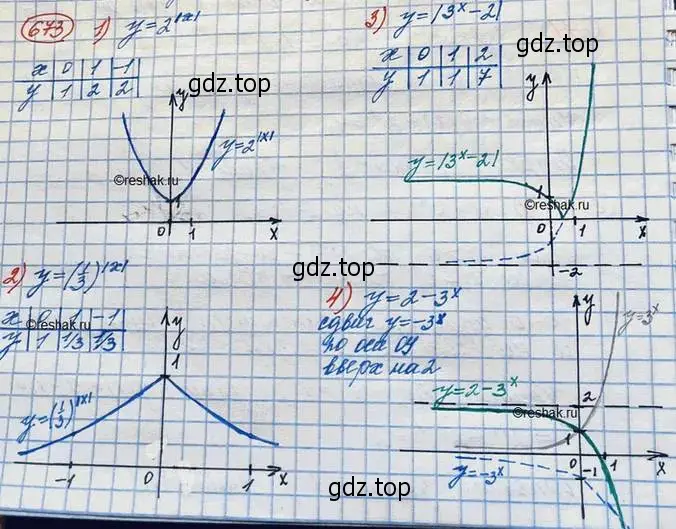 673 1) y=2^|x|
x | 0 | 1 | -1
y | 1 | 2 | 2
gdz.top
y
y=2^|x|
©reshak.ru
1
0 1 x
3) y=|3^x-2|
x | 0 | 1 | 2
y | 1 | 1 | 7
gdz.top
y
y=|3^x-2|
©reshak.ru
1
0 1 x
-2
2) y=(1/3)^|x|
gdz.top
x | 0 | 1 | -1
©reshak.ru
y | 1 | 1/3 | 1/3
y
1
y=(1/3)^|x|
-1 0 1 x
4) y=2-3^x
сдвиг y=-3^x
по оси Oy
вверх на 2
gdz.top
y
y=3^x
y=2-3^x
2
©reshak.ru
1
0 -1 1 x
y=-3^x
gdz.top